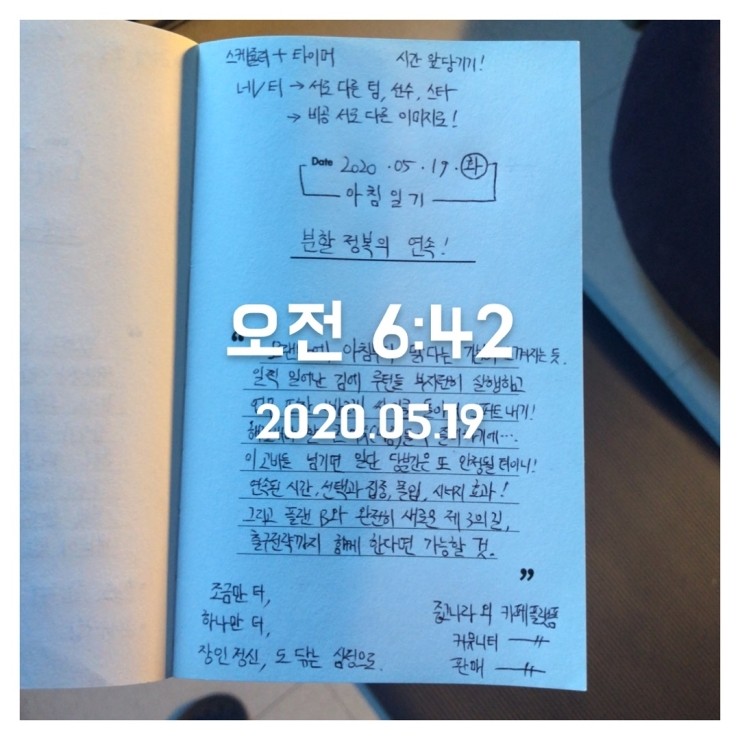 스케쥴러 + 타이머 시간 앞당기기!
네/티 → 서로 다른 팀, 선수, 스타
→ 비공 서로 다른 이미지로!
Date 2020 · 05 · 19 · 화
아침 일기
분할 정복의 연속!
오전 6:42
“
아침
일찍 일어난 김에 루틴들 부지런히 실행하고
2020.05.19
이 고비를 넘기면 일단 당분간은 또 안정될 터이니!
연속된 시간, 선택과 집중, 몰입, 시너지 효과!
그리고 플랜 B와 완전히 새로운 제 3의 길,
출구전략까지 함께 한다면 가능할 것.
”
조금만 더,
하나만 더,
장인 정신, 도 닦는 심정으로.
중고나라 외 카페 플랫폼
커뮤니티 〃
판매 〃